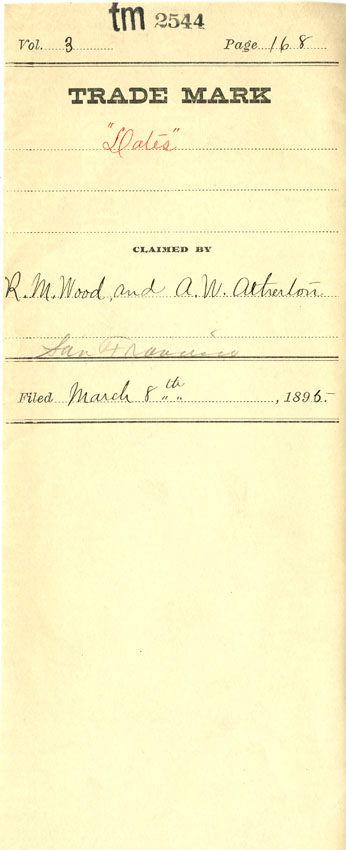 tm 2544
Vol. 3 Page 168
TRADE MARK
"Dates"
CLAIMED BY
R. M. Wood and A. W. Atherton
San Francisco
Filed March 8th, 1895.